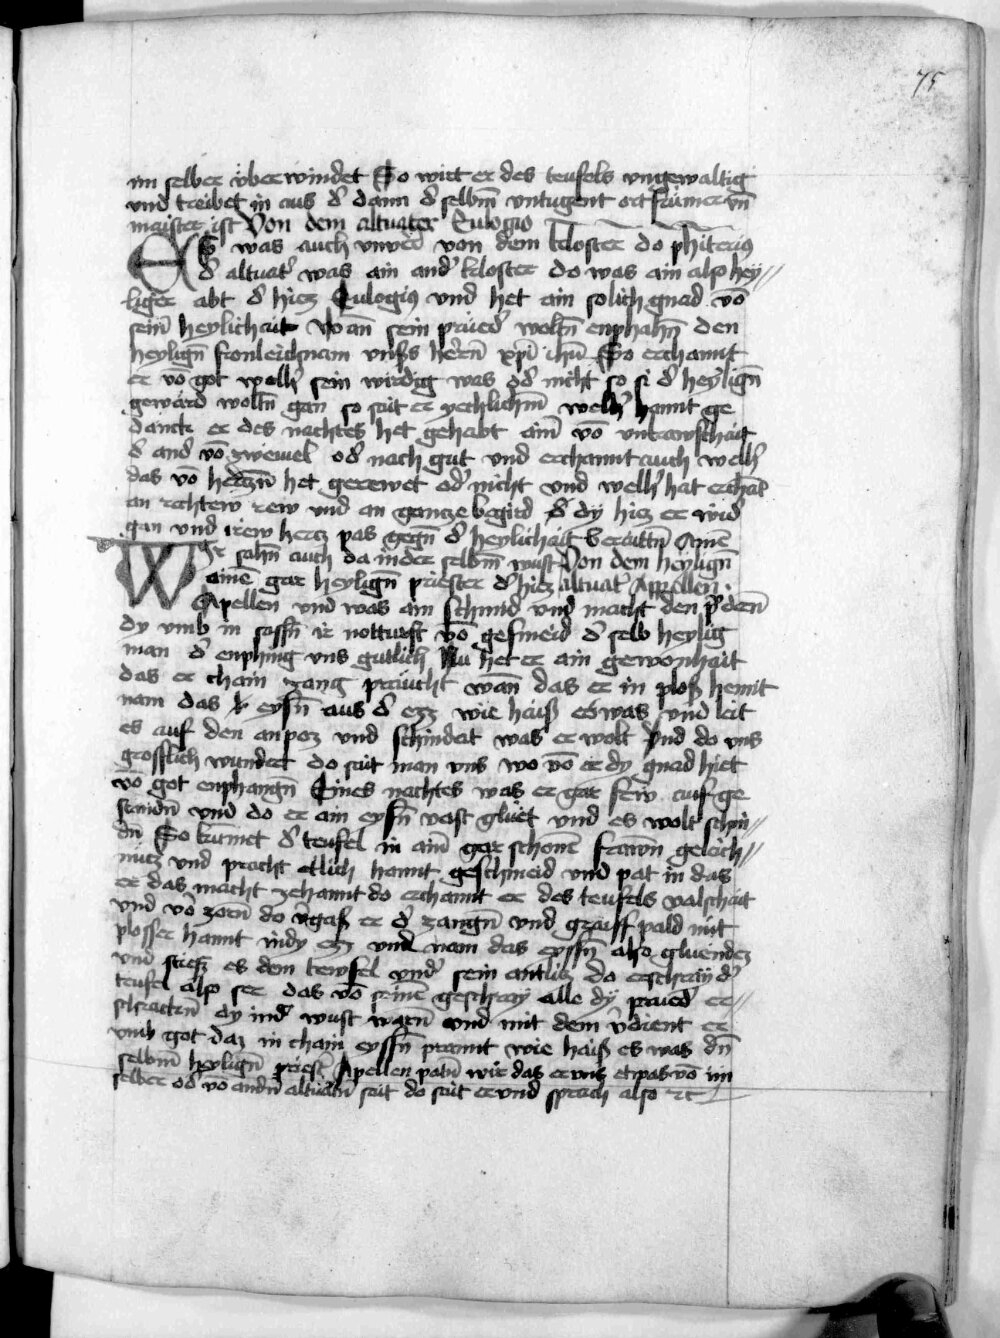 75
im selber vberwindet So wirt er des teufels vngewaltig
vnd treibet in aus d' dann d' selbm̄ vntugent ort frumer vn̄
maister ist Von dem altuater Eulogio
ES was auch vnuer von dem kloster do phiterig
d' altuat' was ain and' kloster do was ain also hey//
liger abt d' hiez Eulogig vnd het ain solich gnad vō
sein̄ heylichait Wan̄ sein prued' woltn̄ enphahn̄ den
heylign̄ fronleichnam vnsers heren̄ xp̄i ih̄u So erchannt
er vō got welh' sein wirdig was od' nicht so si d' heylign̄
woltn̄ gan so sait er yechlichm̄ welh' hannt ge
danck er des nachtes het gehabt ain̄ vō vnkawschait
d' and' vō zweiuel od' nach gut vnd erchannt auch welh'
das vō hertzn̄ het gerewet od' nicht vnd welh' hat erchāt
an rechtew rew vnd an gantze begird d' dy hiez er wid'
gan vnd irew hertz pas gegn̄ d' heylichait beraittn̄ Amē
Wir sahn̄ auch da in der selbm̄ wust Von dem heylign̄
ainē gar heylign̄ priester d' hiez altuat' Appellen
Apellen vnd was ain schmid vnd macht den prudern̄
dy vmb in sassn̄ ir notturft vō gesmeid d' selb heylig
man d' enphing vns gutlich Nu het er ain gewonhait
das er chain zang praucht wān das er in ploss hennt
nam das eysn̄ aus d' ezz wie haiss es was vnd leit
es auf den anpoz vnd schmidat was er wolt Vnd do vns
grosslich wundert do sait man vns wo vō er dy gnad hiet
vō got enphangn̄ Eines nachtes was er gar frw auf ge
standn̄ vnd do er ain eysn̄ vast gluet vnd es wolt schmi//
dn̄ So kumet d' teufel in ain̄ gar schonē frawn̄ geleich//
nuz vnd pracht etlich hannt geschmeid vnd pat in das
er das macht zehannt do erchannt er des teufels valschait
vnd vō zorn̄ do v'gass er d' zangn̄ vnd graiff pald mit
plosser hannt in dy ezz vnd nam das eyssn̄ also gluendez
vnd stiess es dem tewfel vnd' sein antliz do erschray d'
teufel also ser das vō seinē geschray alle dy prued' er//
schractn̄ dy in d' wust warn̄ vnd mit dem v'dient er
vmb got daz in chain eyssn̄ prannt wie haiss es was dn̄
selbm̄ heylign̄ priest' Apellen patn̄ wir das er vns etwas vō im
selber od' vō andn̄ altuatn̄ sait do sait er vnd sprach also ꝛc